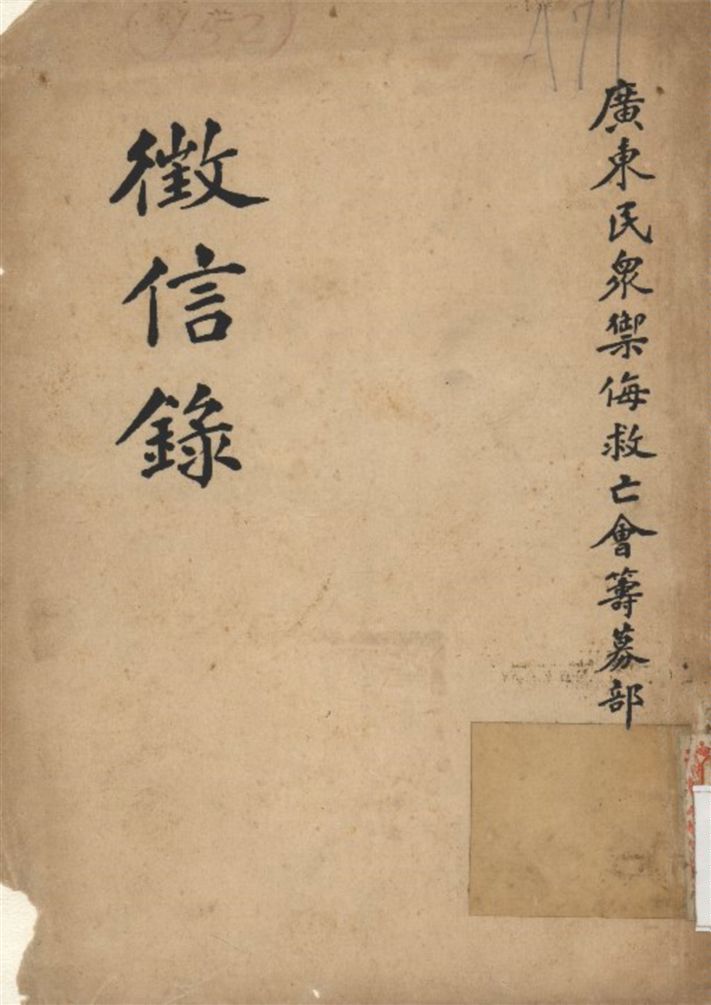 廣東民衆禦侮救亡會籌募部
徵信錄